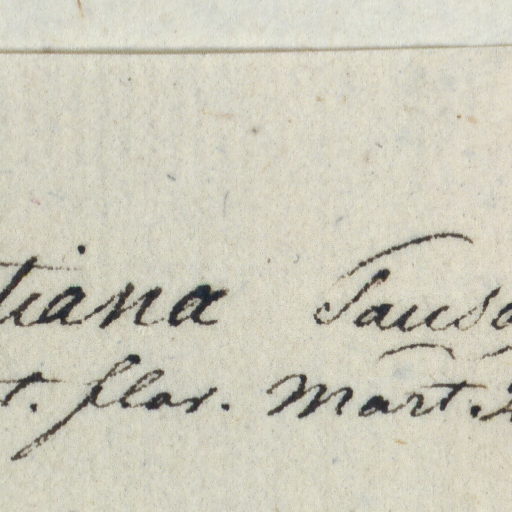 tiana Sauso
t. flor. Mart.